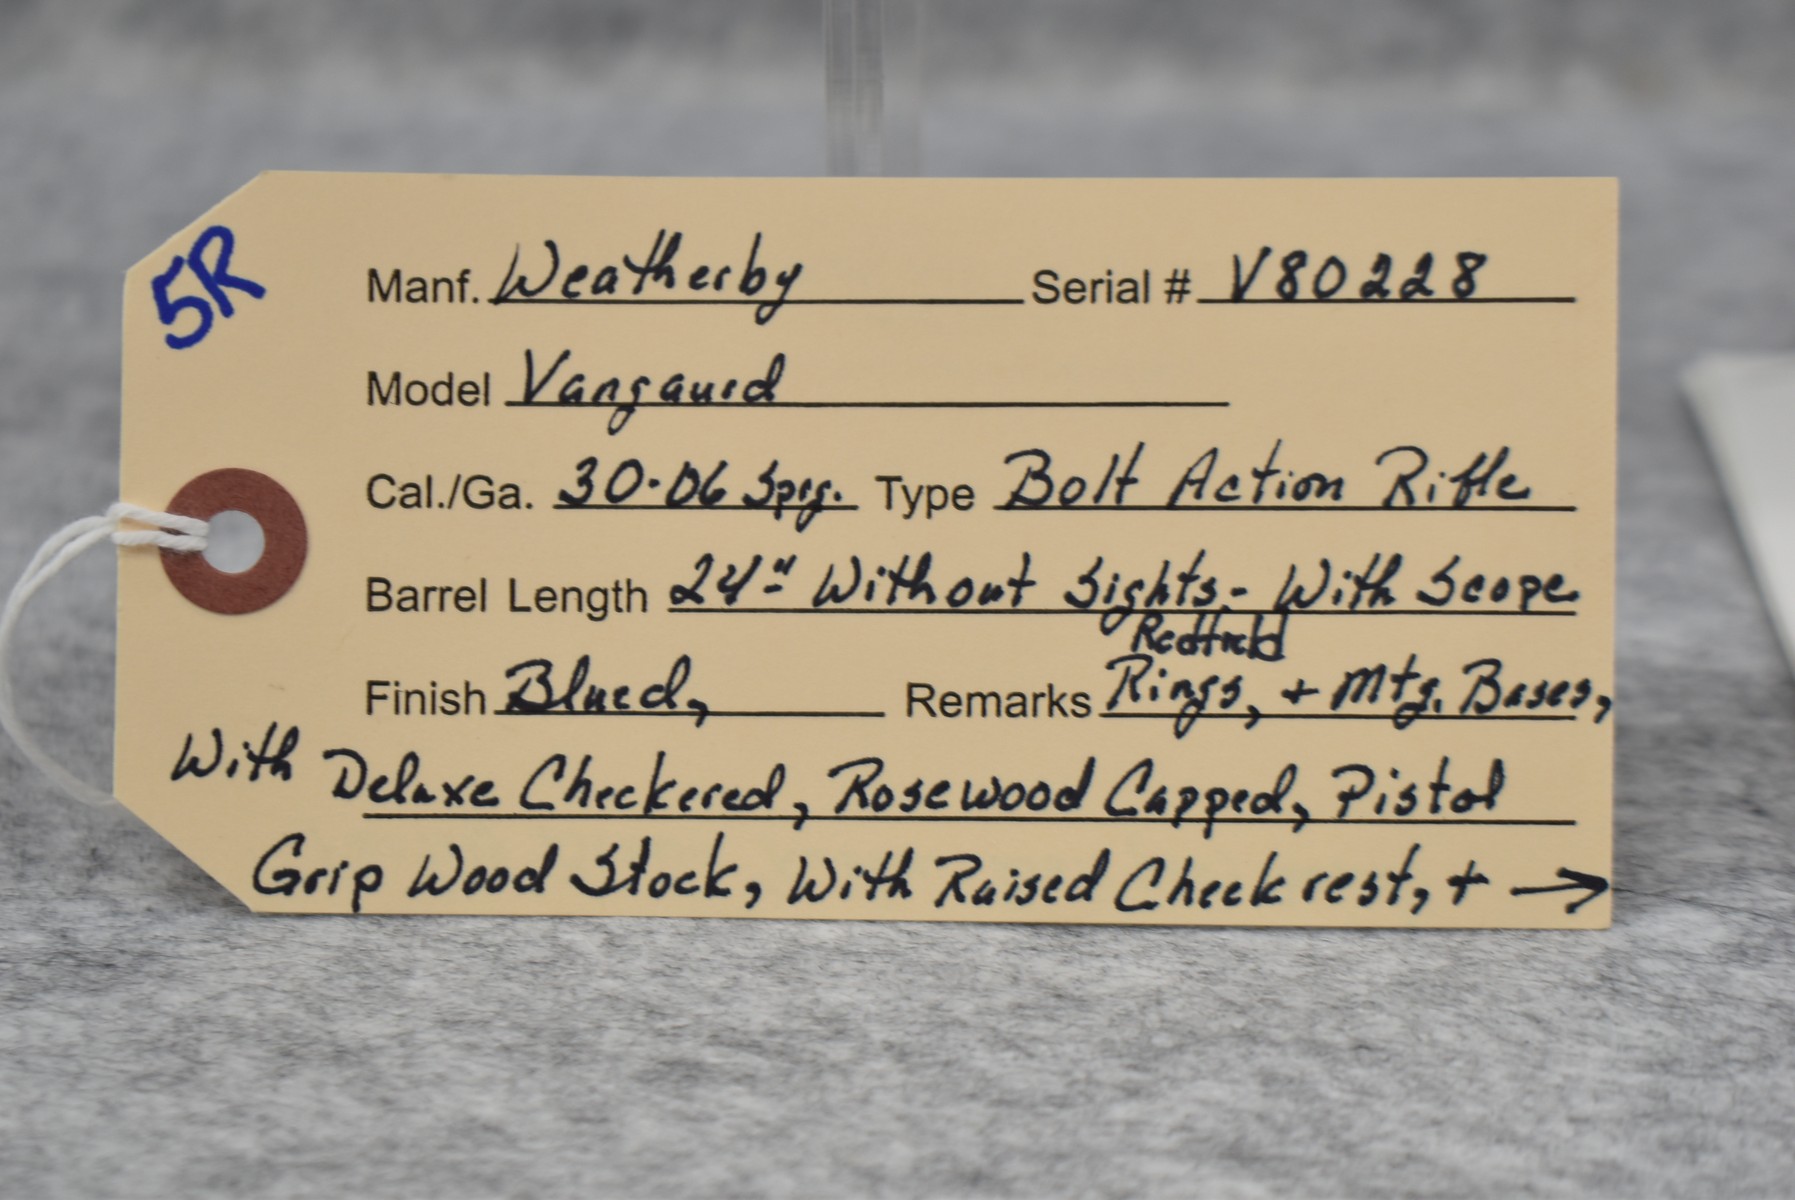 5R
Manf. Weatherby Serial # V80228
Model Vangaurd
Cal./Ga. 30-06 Sprg. Type Bolt Action Rifle
Barrel Length 24" Without Sights - With Scope
Redfield
Finish Blued, Remarks Rings, + Mtg. Bases,
With Deluxe Checkered, Rosewood Capped, Pistol
Grip Wood Stock, With Raised Cheek rest, + →